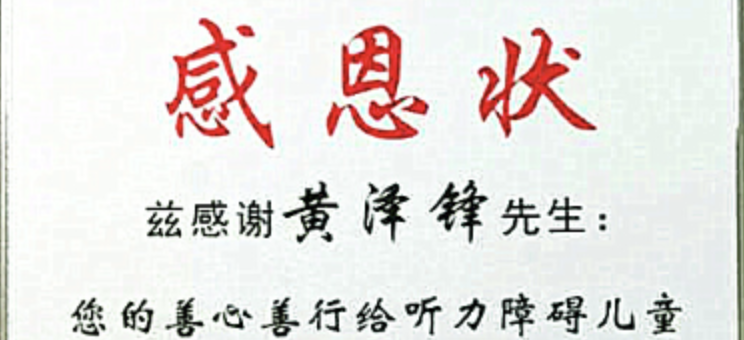 感恩状
兹感谢黄泽锋先生：
您的善心善行给听力障碍儿童